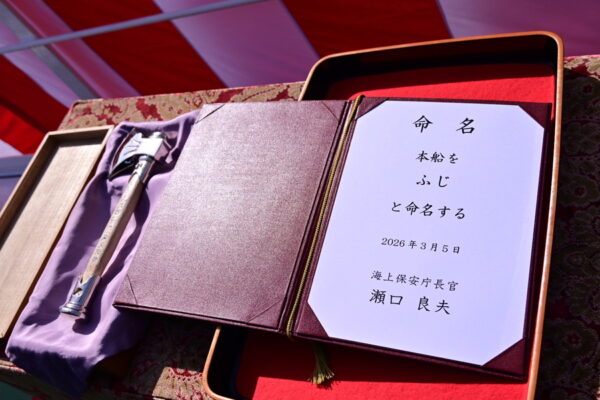 命名
本船を
ふじ
と命名する
2026年3月5日
海上保安庁長官
瀬口 良夫